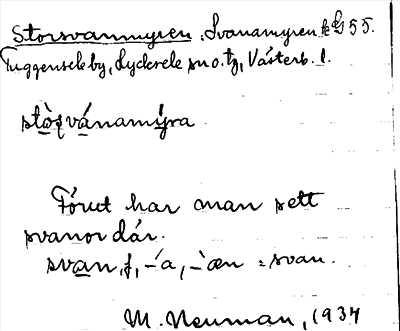 Storsvanmyren, Svanamyren
Tuggensele by, Lycksele sn o. tg, Västerb. l.
stòṣvánamýra
Förut har man sett
svanor där.
svan, f, -́a, -̀æn = svan.
M. Neuman, 1934